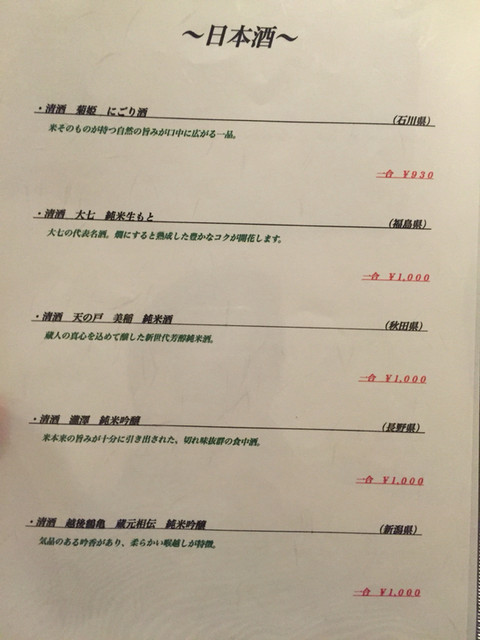 〜日本酒〜
・清酒　菊姫　にごり酒　（石川県）
米そのものが持つ自然の旨みが口中に広がる一品。
一合　￥930
・清酒　大七　純米生もと　（福島県）
大七の代表名酒。燗にすると熟成した豊かなコクが開花します。
一合　￥1,000
・清酒　天の戸　美稲　純米酒　（秋田県）
蔵人の真心を込めて醸した新世代芳醇純米酒。
一合　￥1,000
・清酒　瀧澤　純米吟醸　（長野県）
米本来の旨みが十分に引き出された、切れ味抜群の食中酒。
一合　￥1,000
・清酒　越後鶴亀　蔵元相伝　純米吟醸　（新潟県）
気品のある吟香があり、柔らかい喉越しが特徴。
一合　￥1,000